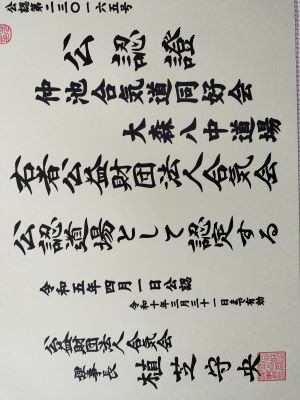 公認第二三〇一六五号
公認證
仲池合気道同好会
大森八中道場
右者公益財団法人合気会
公認道場として認定する
令和五年四月一日公認
令和十年三月三十一日まで有効
公益財団法人合気会
理事長 植芝守央